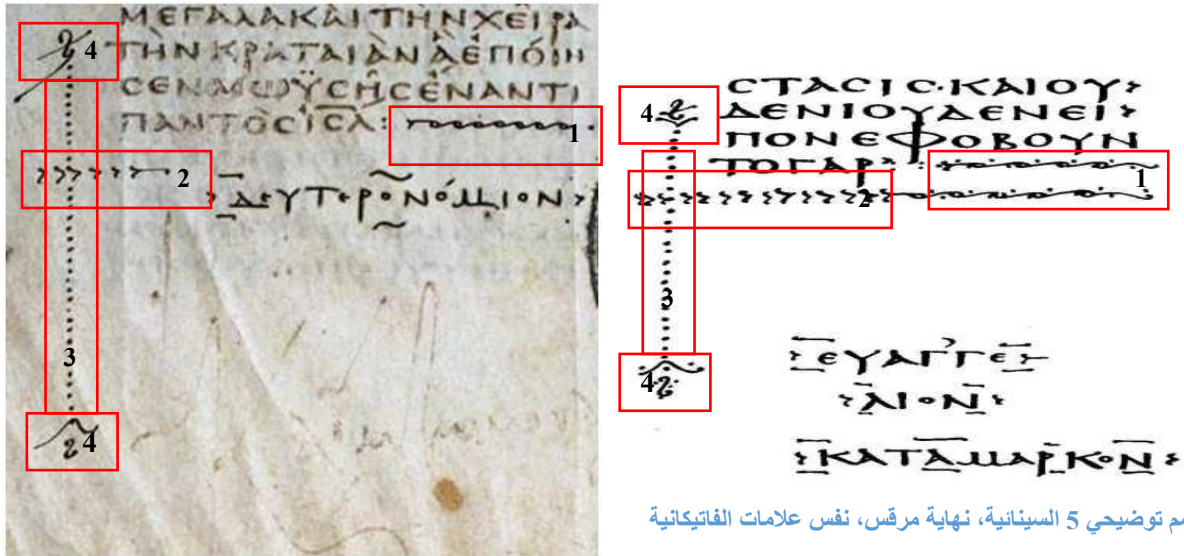 ΜΕΓΑΛΑΚΑΙΤΗΝΧΕΙΡΑ
4 ΤΗΝΚΡΑΤΑΙΑΝΑΕΠΟΙΗ
ϹΕΝΜΩΥϹΗϹΕΝΑΝΤΙ
ΠΑΝΤΟϹΙϹΛ: 1
2
ΔΕΥΤΕΡΟΝΟΜΙΟΝ
3
4
ϹΤΑϹΙϹ·ΚΑΙΟΥ
4 ΔΕΝΙΟΥΔΕΝΕΙ
ΠΟΝΕΦΟΒΟΥΝ
ΤΟΓΑΡ· 1
2
3
ΕΥΑΓΓΕ
4 ΛΙΟΝ
ΚΑΤΑΜΑΡΚΟΝ
توضيحي 5 السينائية، نهاية مرقس، نفس علامات الفاتيكانية